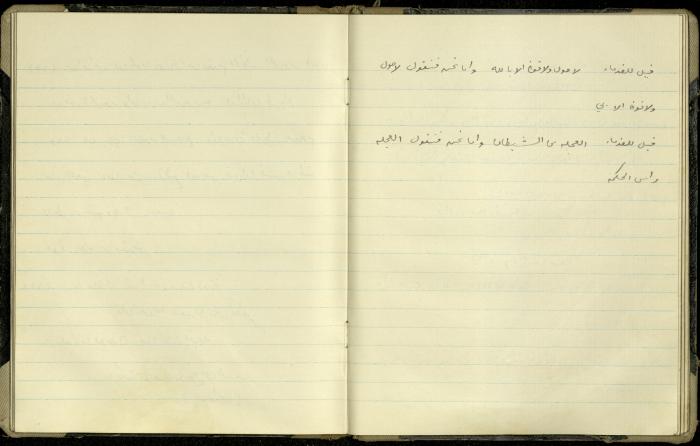 قيل للقدماء لا حول ولا قوة الا بالله وأما نحن فنقول لا حول
ولا قوة الا بي
قيل للقدماء العجله من الشيطان وأما نحن فنقول العجله
رأس الحكمه